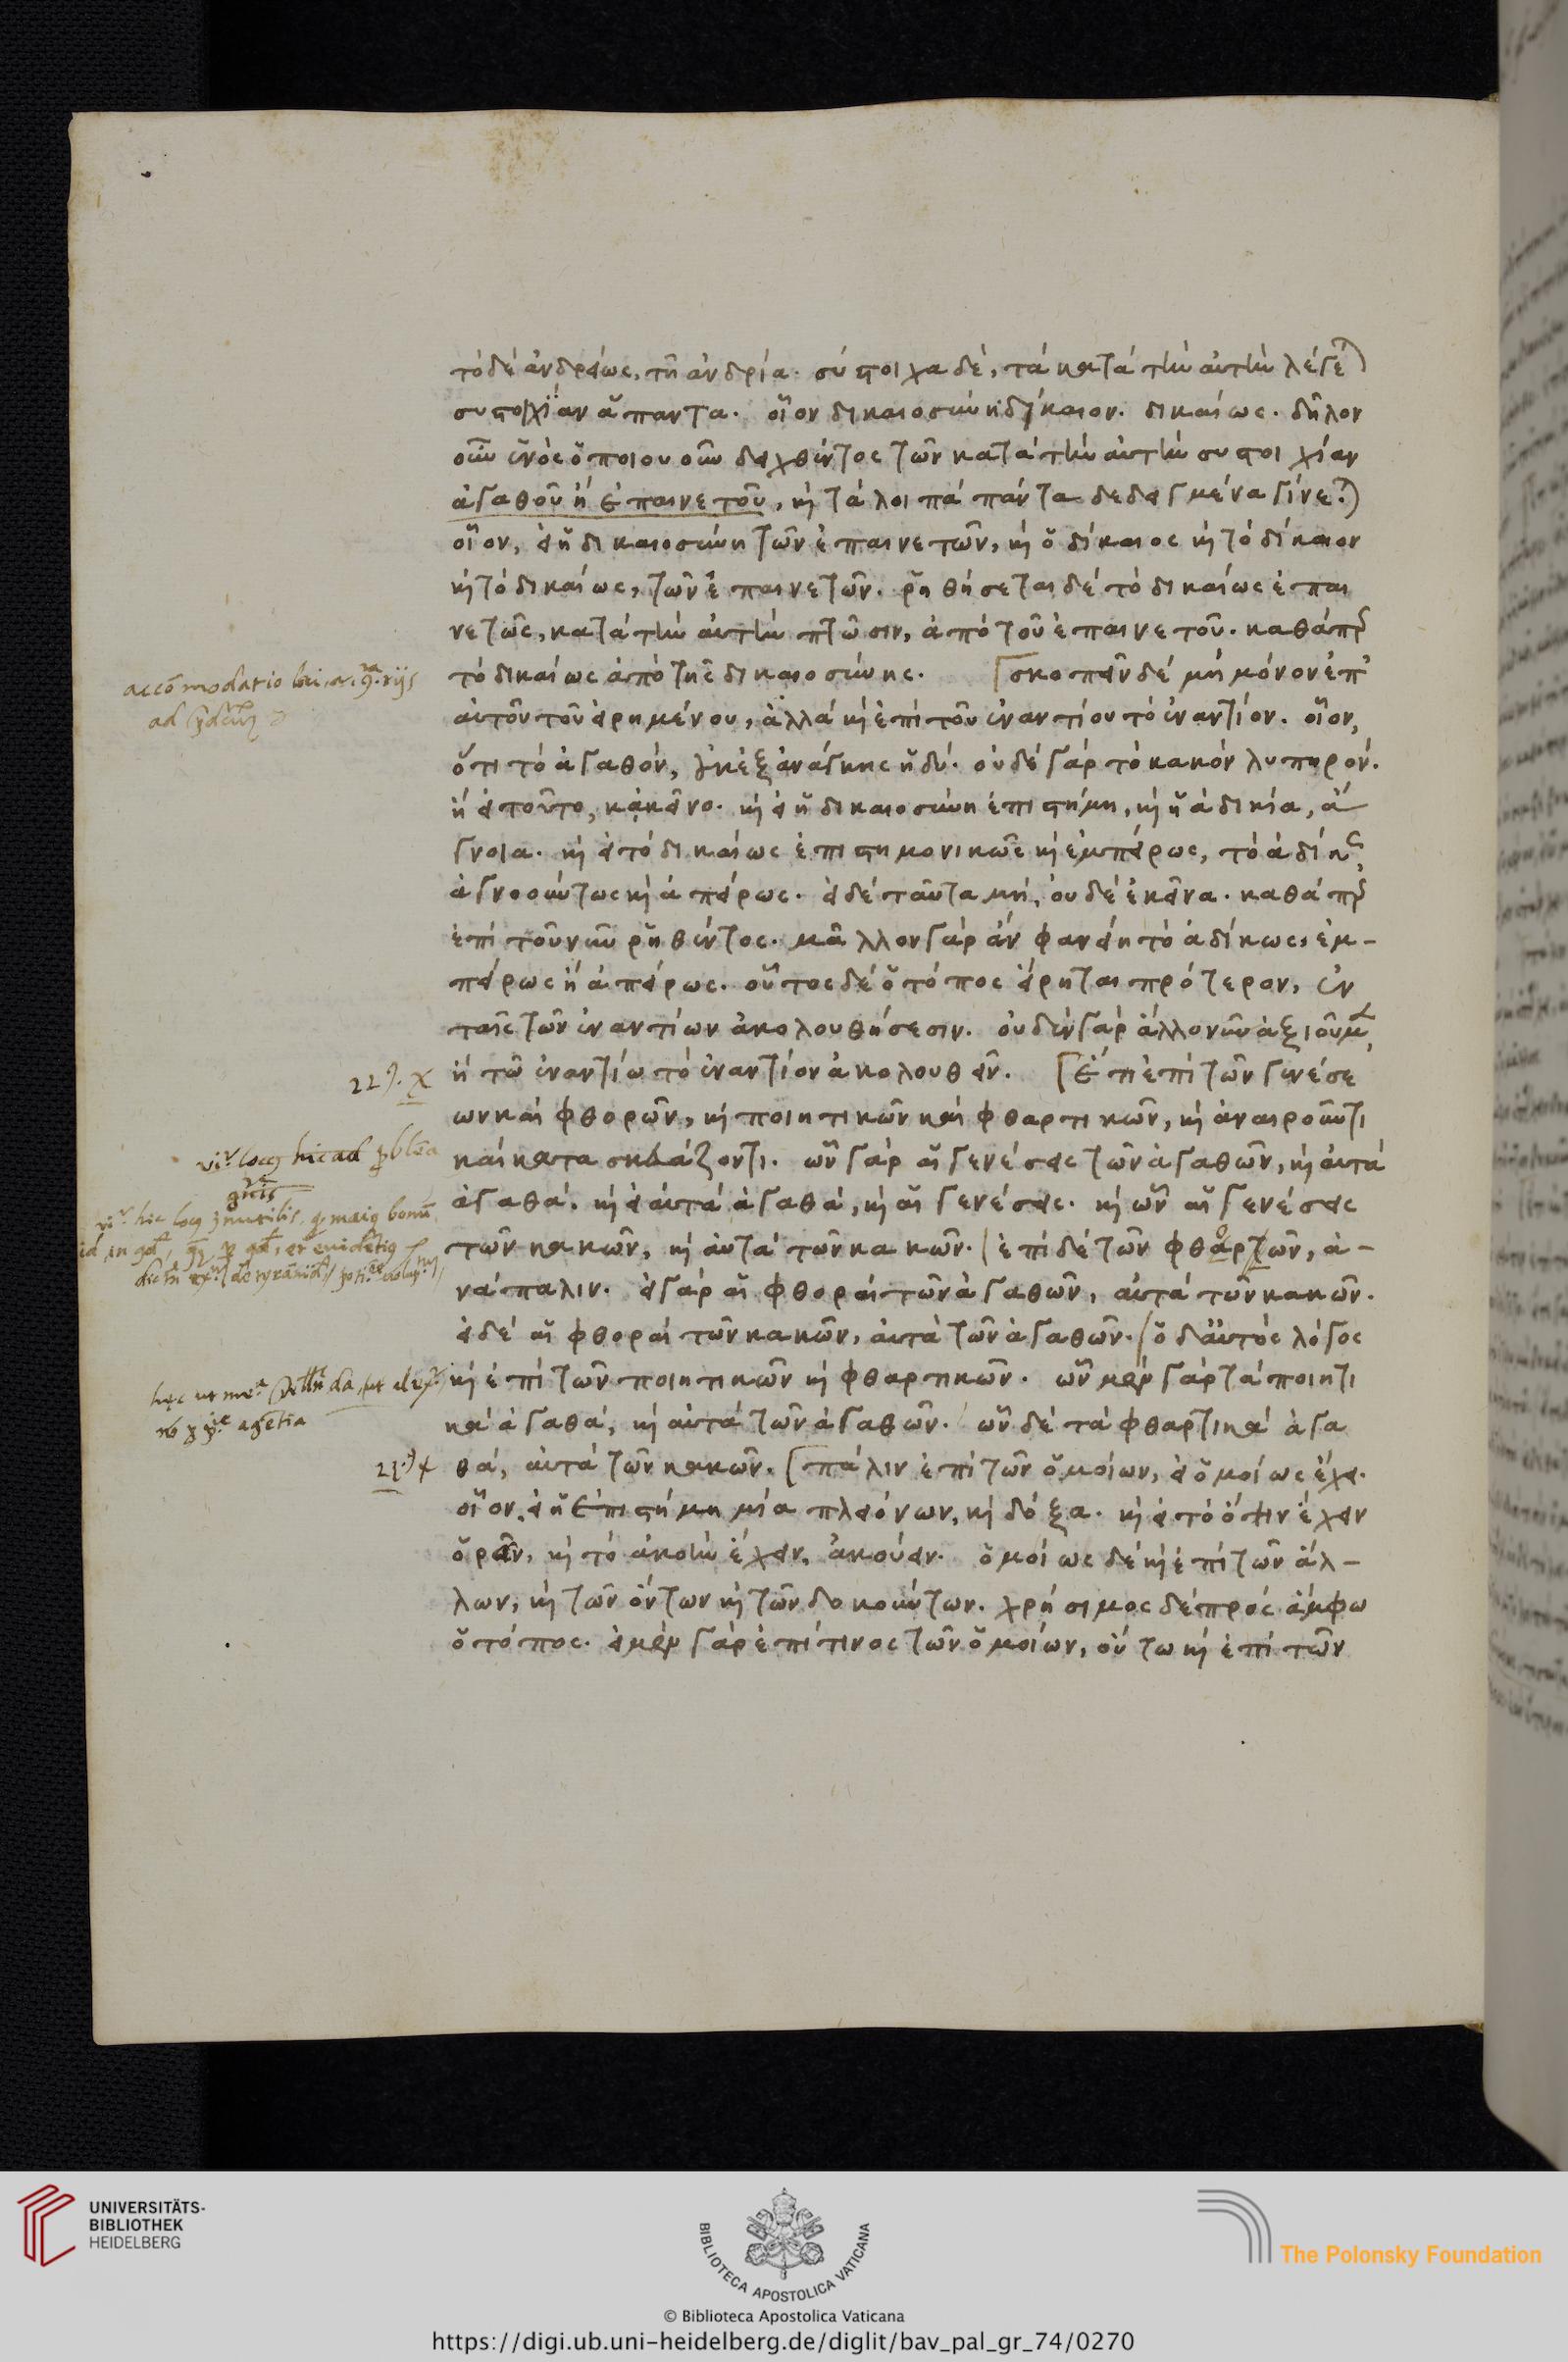 τὸ δὲ ἀνδρείως, τῆ ἀνδρία. σύστοιχα δὲ, τὰ κατὰ τὴν αὐτὴν λέγε)
συστοιχίαν ἅπαντα. οἷον δικαιοσύνη δίκαιον. δικαίως. δῆλον
οὖν ἑνὸς ὁποίου οὖν δειχθέντος τῶν κατὰ τὴν αὐτὴν συστοι χίαν
ἀγαθοῦ ἢ ἐπαινετοῦ, κὶ τὰ λοιπὰ πάντα δεδειγμένα γίνε)
οἷον, εἰ ἡ δικαιοσύνη τῶν ἐπαινετῶν, κὶ ὁ δίκαιος κὶ τὸ δίκαιον
κὶ τὸ δικαίως, τῶν ἐπαινετῶν. ῥηθήσεται δὲ τὸ δικαίως ἐπαι
νετῶς, κατὰ τὴν αὐτὴν πτῶσιν, ἀπὸ τοῦ ἐπαινετοῦ. καθάπρ
τὸ δικαίως ἀπὸ τῆς δικαιοσύνης. [σκοπεῖν δὲ μὴ μόνον ἐπ'
αὐτοῦ τοῦ εἰρημένου, ἀλλὰ κὶ ἐπὶ τοῦ ἐναντίου τὸ ἐναντίον. οἷον,
ὅτι τὸ ἀγαθὸν, οὐκ ἐξ ἀνάγκης ἡδύ. οὐδὲ γὰρ τὸ κακὸν λυπηρόν.
ἢ εἰ τοῦτο, κἀκεῖνο. κὶ εἰ ἡ δικαιοσύνη ἐπιστήμη, κὶ ἡ ἀδικία, ἄ
γνοια. κὶ εἰ τὸ δικαίως ἐπιστημονικῶς κὶ ἐμπείρως, τὸ ἀδίκς
ἀγνοούντως κὶ ἀπείρως. εἰ δὲ ταῦτα μὴ, οὐδὲ ἐκεῖνα. καθάπρ
ἐπὶ τοῦ νῦν ῥηθέντος. μᾶλλον γὰρ ἂν φανείη τὸ ἀδίκως, ἐμ-
πείρως ἢ ἀπείρως. οὗτος δὲ ὁ τόπος εἴρηται πρότερον, ἐν
ταῖς τῶν ἐναντίων ἀκολουθήσεσιν. οὐδὲν γὰρ ἄλλο νῦν ἀξιοῦμ
22). χ ἢ τῶ ἐναντίω τὸ ἐναντίον ἀκολουθεῖν. [ἔτι ἐπὶ τῶν γενέσε
ων καὶ φθορῶν, κὶ ποιητικῶν καὶ φθαρτικῶν, κὶ ἀναιροῦντι
καὶ κατασκευάζοντι. ὧν γὰρ αἱ γενέσεις τῶν ἀγαθῶν, κὶ αὐτὰ
ἀγαθά. κὶ εἰ αὐτὰ ἀγαθά, κὶ αἱ γενέσεις. κὶ ὧν αἱ γενέσεις
τῶν κακῶν, κὶ αὐτὰ τῶν κακῶν. (ἐπὶ δὲ τῶν φθαρτῶν, ἀ-
νάπαλιν. εἰ γὰρ αἱ φθοραὶ τῶν ἀγαθῶν, αὐτὰ τῶν κακῶν.
εἰ δὲ αἱ φθοραὶ τῶν κακῶν, αὐτὰ τῶν ἀγαθῶν. (ὁ δ' αὐτὸς λόγος
κὶ ἐπὶ τῶν ποιητικῶν κὶ φθαρτικῶν. ὧν μὲν γὰρ τὰ ποιητι
κὰ ἀγαθά, κὶ αὐτὰ τῶν ἀγαθῶν. ὧν δὲ τὰ φθαρτικὰ ἀγα
23) χ θά, αὐτὰ τῶν κακῶν. [πάλιν ἐπὶ τῶν ὁμοίων, εἰ ὁμοίως ἔχει.
οἷον, εἰ ἡ ἐπιστήμη μία πλειόνων, κὶ δόξα. κὶ εἰ τὸ ὄψιν ἔχειν
ὁρᾶν, κὶ τὸ ἀκοὴν ἔχειν, ἀκούειν. ὁμοίως δὲ κὶ ἐπὶ τῶν ἄλ-
λων, κὶ τῶν ὄντων κὶ τῶν δοκούντων. χρήσιμος δὲ πρὸς ἄμφω
ὁ τόπος. εἰ μὲν γὰρ ἐπί τινος τῶν ὁμοίων, οὕτω κὶ ἐπὶ τῶν
UNIVERSITÄTS-
BIBLIOTHEK
HEIDELBERG
BIBLIOTECA APOSTOLICA VATICANA
The Polonsky Foundation
© Biblioteca Apostolica Vaticana
https://digi.ub.uni-heidelberg.de/diglit/bav_pal_gr_74/0270